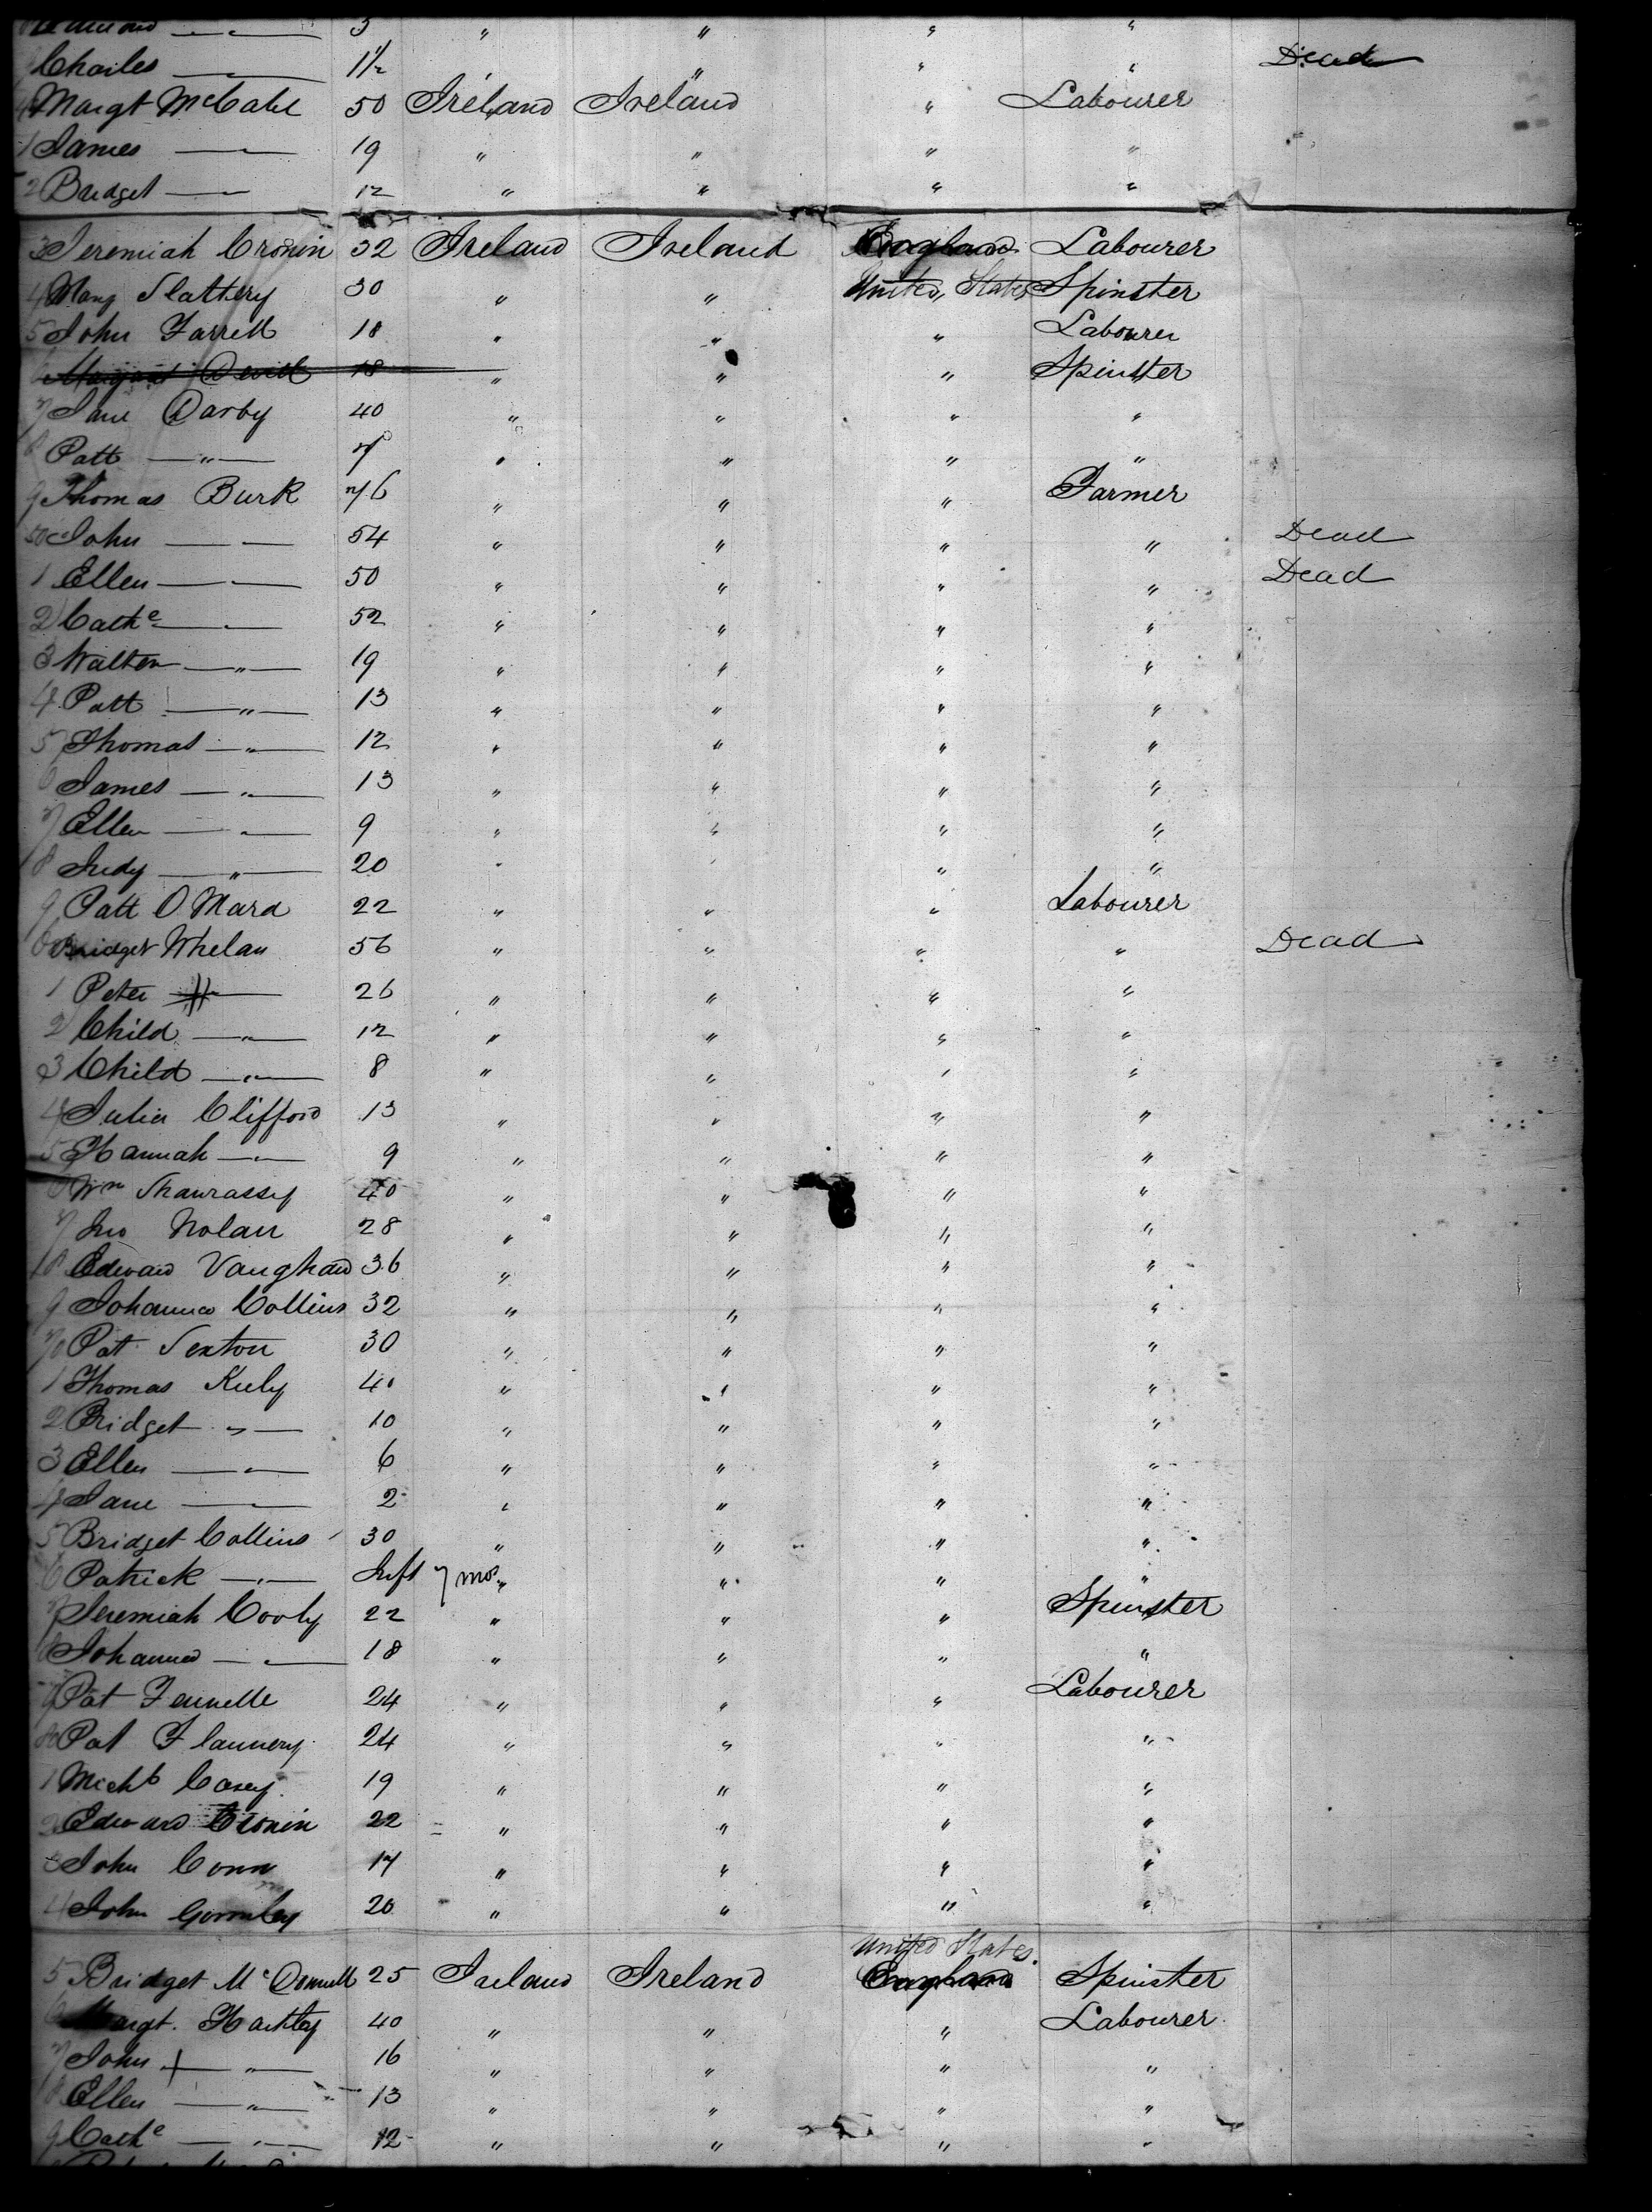 3 " " " "
Charles — " — 1 1/2 " " " " Dead
Margt McCabe 50 Ireland Ireland " Labourer
1 James — " — 19 " " " "
2 Bridget — " — 12 " " " "
3 Jeremiah Cronin 32 Ireland Ireland England Labourer
4 Mary Slattery 30 " " United States Spinster
5 John Farrell 18 " " " Labourer
18 " " " Spinster
7 Jane Darby 40 " " " "
8 Patt — " — 7 " " " "
9 Thomas Burk 76 " " " Farmer
50 John — " — 54 " " " " Dead
1 Ellen — " — 50 " " " " Dead
2 Cathe — " — 52 " " " "
3 Walter — " — 19 " " " "
4 Patt — " — 13 " " " "
5 Thomas — " — 12 " " " "
6 James — " — 13 " " " "
7 Ellen — " — 9 " " " "
8 Judy — " — 20 " " " "
9 Patt O Mara 22 " " " Labourer
60 Bridget Whelan 56 " " " " Dead
1 Peter — 26 " " " "
2 Child — " — 12 " " " "
3 Child — " — 8 " " " "
4 Julia Clifford 13 " " " "
5 Hannah — " — 9 " " " "
Wm 40 " " " "
7 Jno Nolan 28 " " " "
8 Edward Vaughan 36 " " " "
9 Johanna Collins 32 " " " "
70 Pat Sexton 30 " " " "
1 Thomas 40 " " " "
2 Bridget " — 10 " " " "
3 Ellen — " — 6 " " " "
4 Jane — " — 2 " " " "
5 Bridget Collins 30 " " " "
6 Patrick — " — Inft 7 mos " " " "
7 Jeremiah 22 " " " Spinster
8 Johanna — " — 18 " " " "
9 Pat Fennelle 24 " " " Labourer
80 Pat Flannery 24 " " " "
1 Michl Casey 19 " " " "
2 Edward Cronin 22 " " " "
3 John Conn 17 " " " "
4 John Gormley 20 " " " "
United States
5 Bridget McDonnell 25 Ireland Ireland England Spinster
6 Margt. 40 " " " Labourer
7 John — " — 16 " " " "
8 Ellen — " — 13 " " " "
9 Cathe — " — 12 " " " "